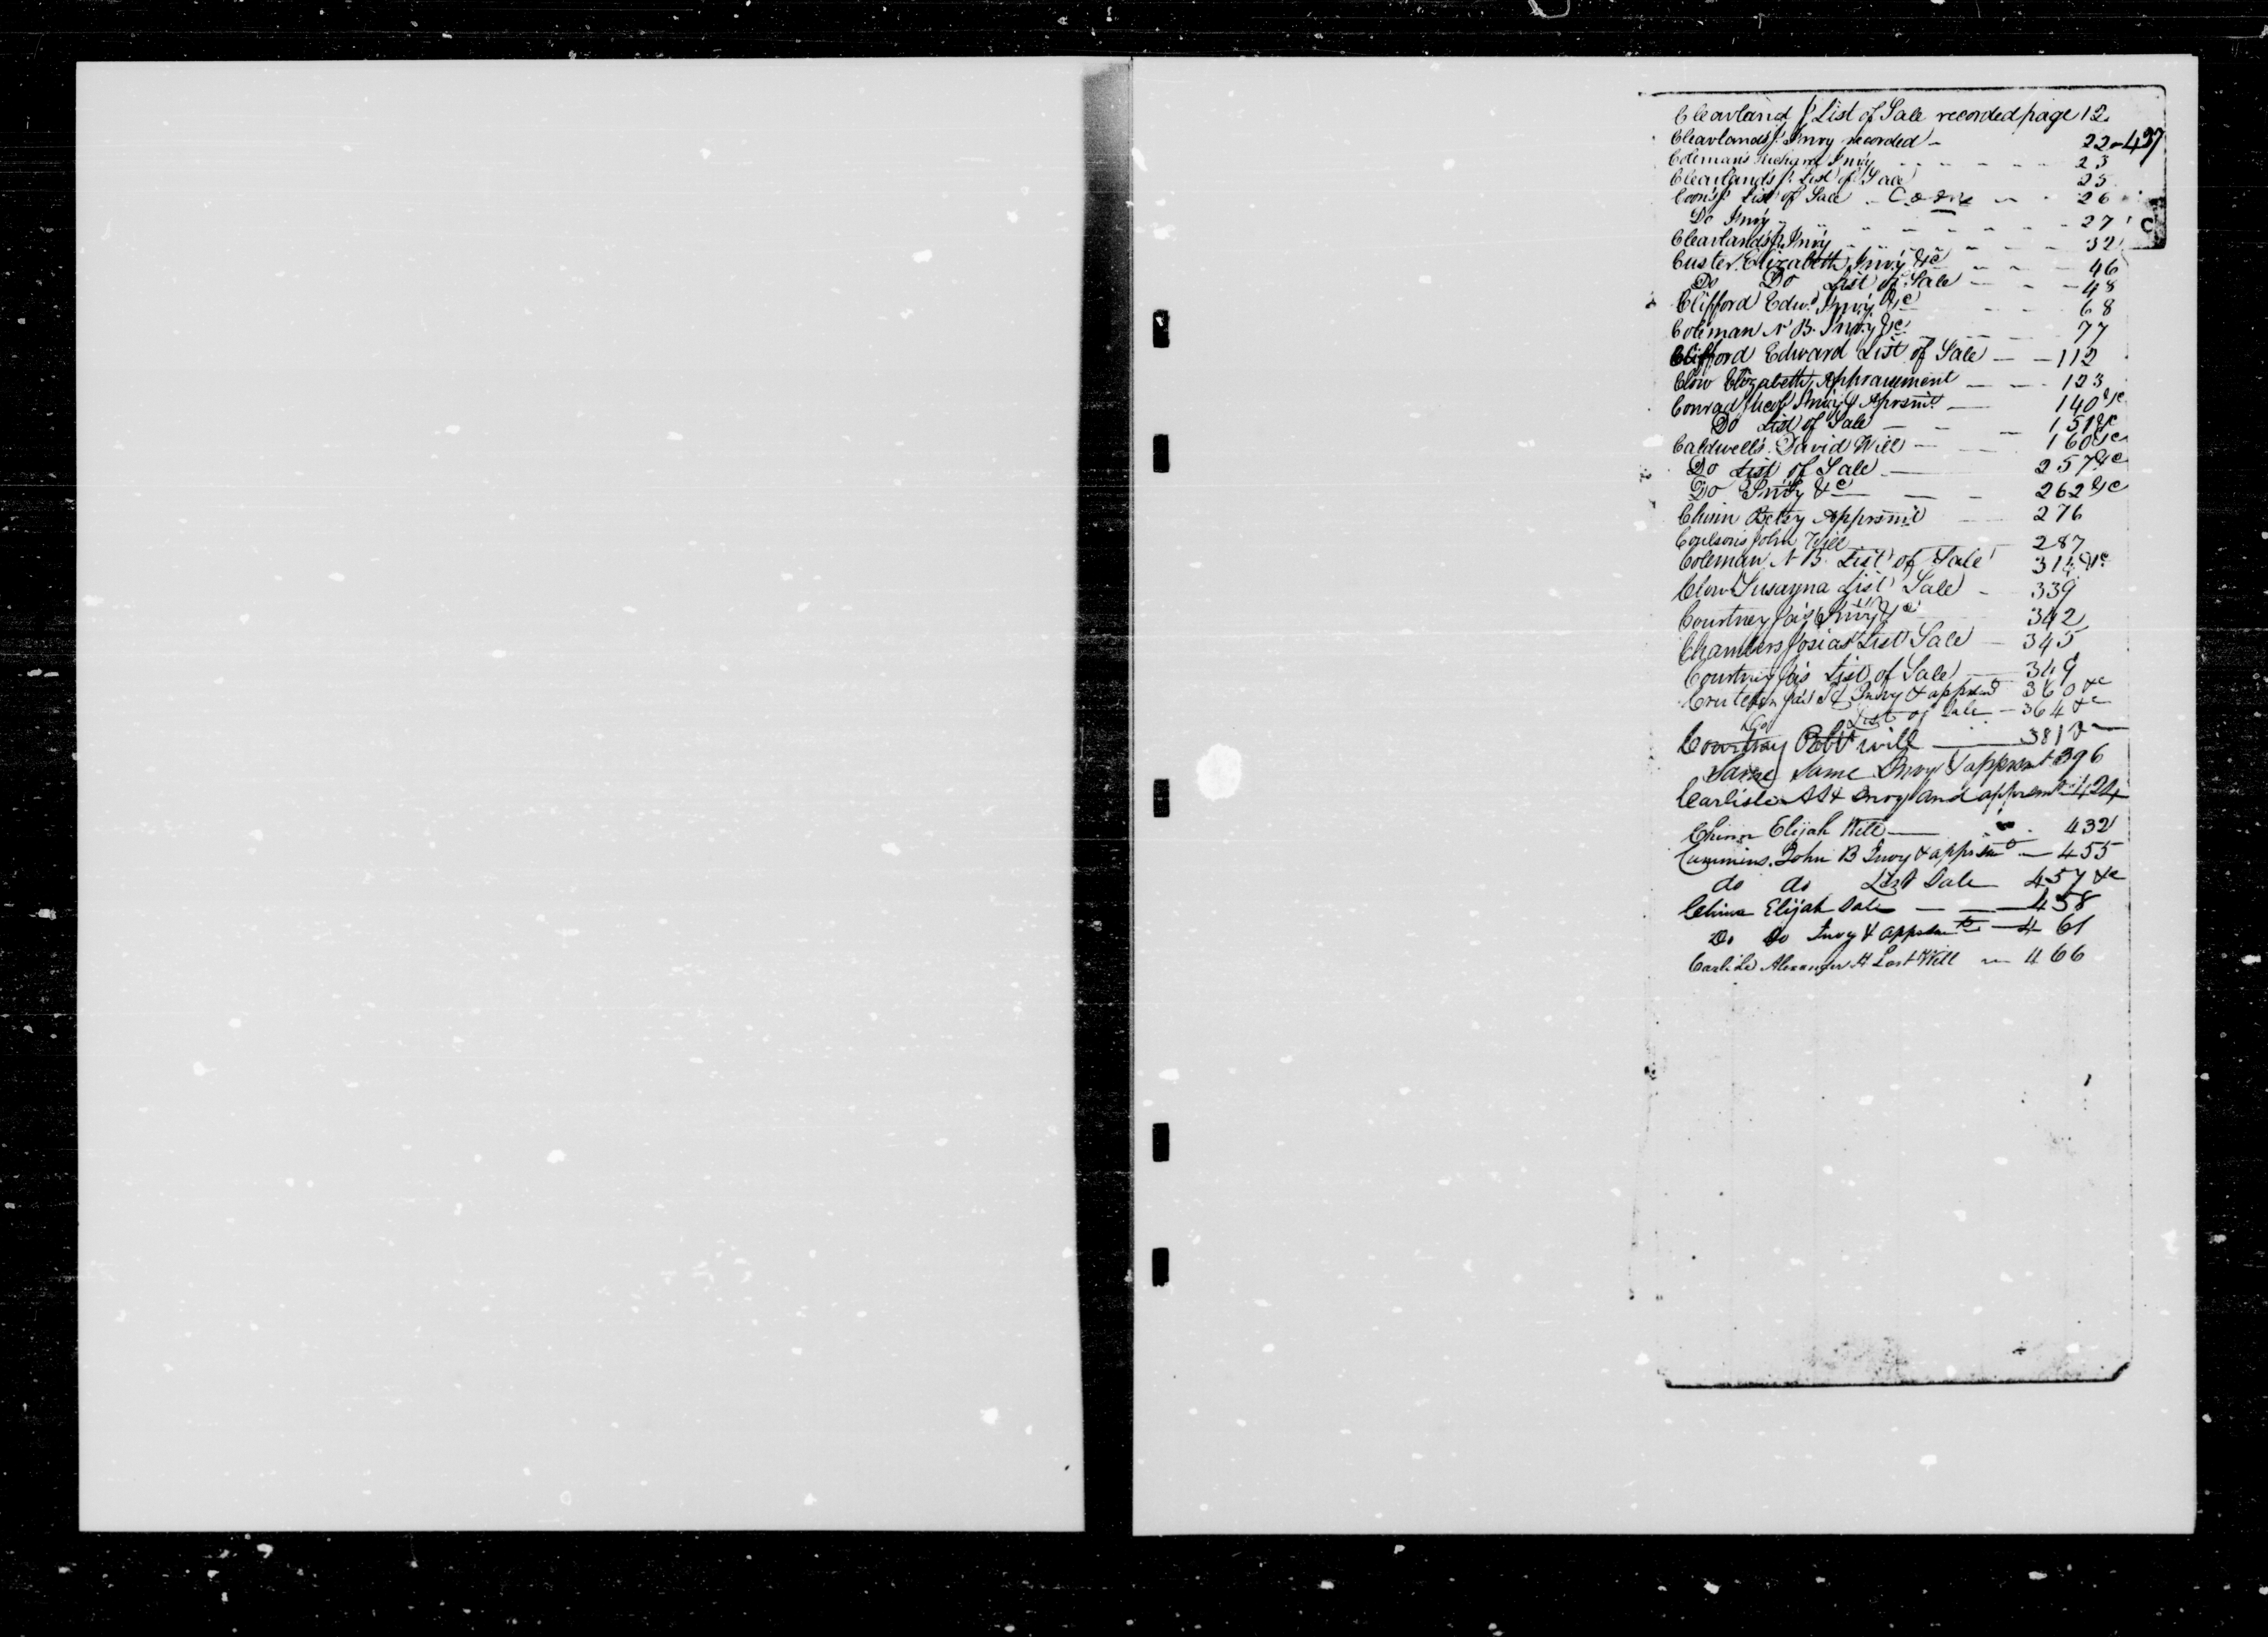 Cleavland J. List of Sale recorded page 12
Cleavland's J. Invy recorded - 22-437
Coleman's Invy 23
Cleavland's J. List of Sale 25
Coons J. List of Sale - Coons - 26
C
Do Invy 27
Cleavland's J. Invy 32
Custer Elizabeth Invy &c 46
Do Do List of Sale 48
Clifford Edwd Invy &c 68
Coleman N B. Invy &c 77
Clifford Edward List of Sale 112
Clow Elizabeth Appraisement 123
Conrad Jacob Invy & Aprsmt 140 &c
Do List of Sale 151 &c
Caldwell's David Will 160 &c
Do List of Sale 257 &c
Do Invy &c 262 &c
Chinn Betsy Apprsmt 276
Coulson's John Will 287
Coleman N B List of Sale 314 &c
Clow Susanna List Sale - 339
Courtney Jas Invy &c 342
Chambers Josias List Sale - 345
Courtney Jas List of Sale 349
Invy & apprsmt 360 &c
Do List of Sale - 364 &c
Courtney Robt will 381 &c
Same Same Invy & apprsmt 396
Carlisle A H Invy and apprsmt 424
Chinn Elijah Will 432
Cummins John B Invy & apprsmt - 455
do do List Sale 457 &c
Chinn Elijah Sale 458
Do Do Invy & apprsmt 461
Carlisle Alexander H Last Will 466